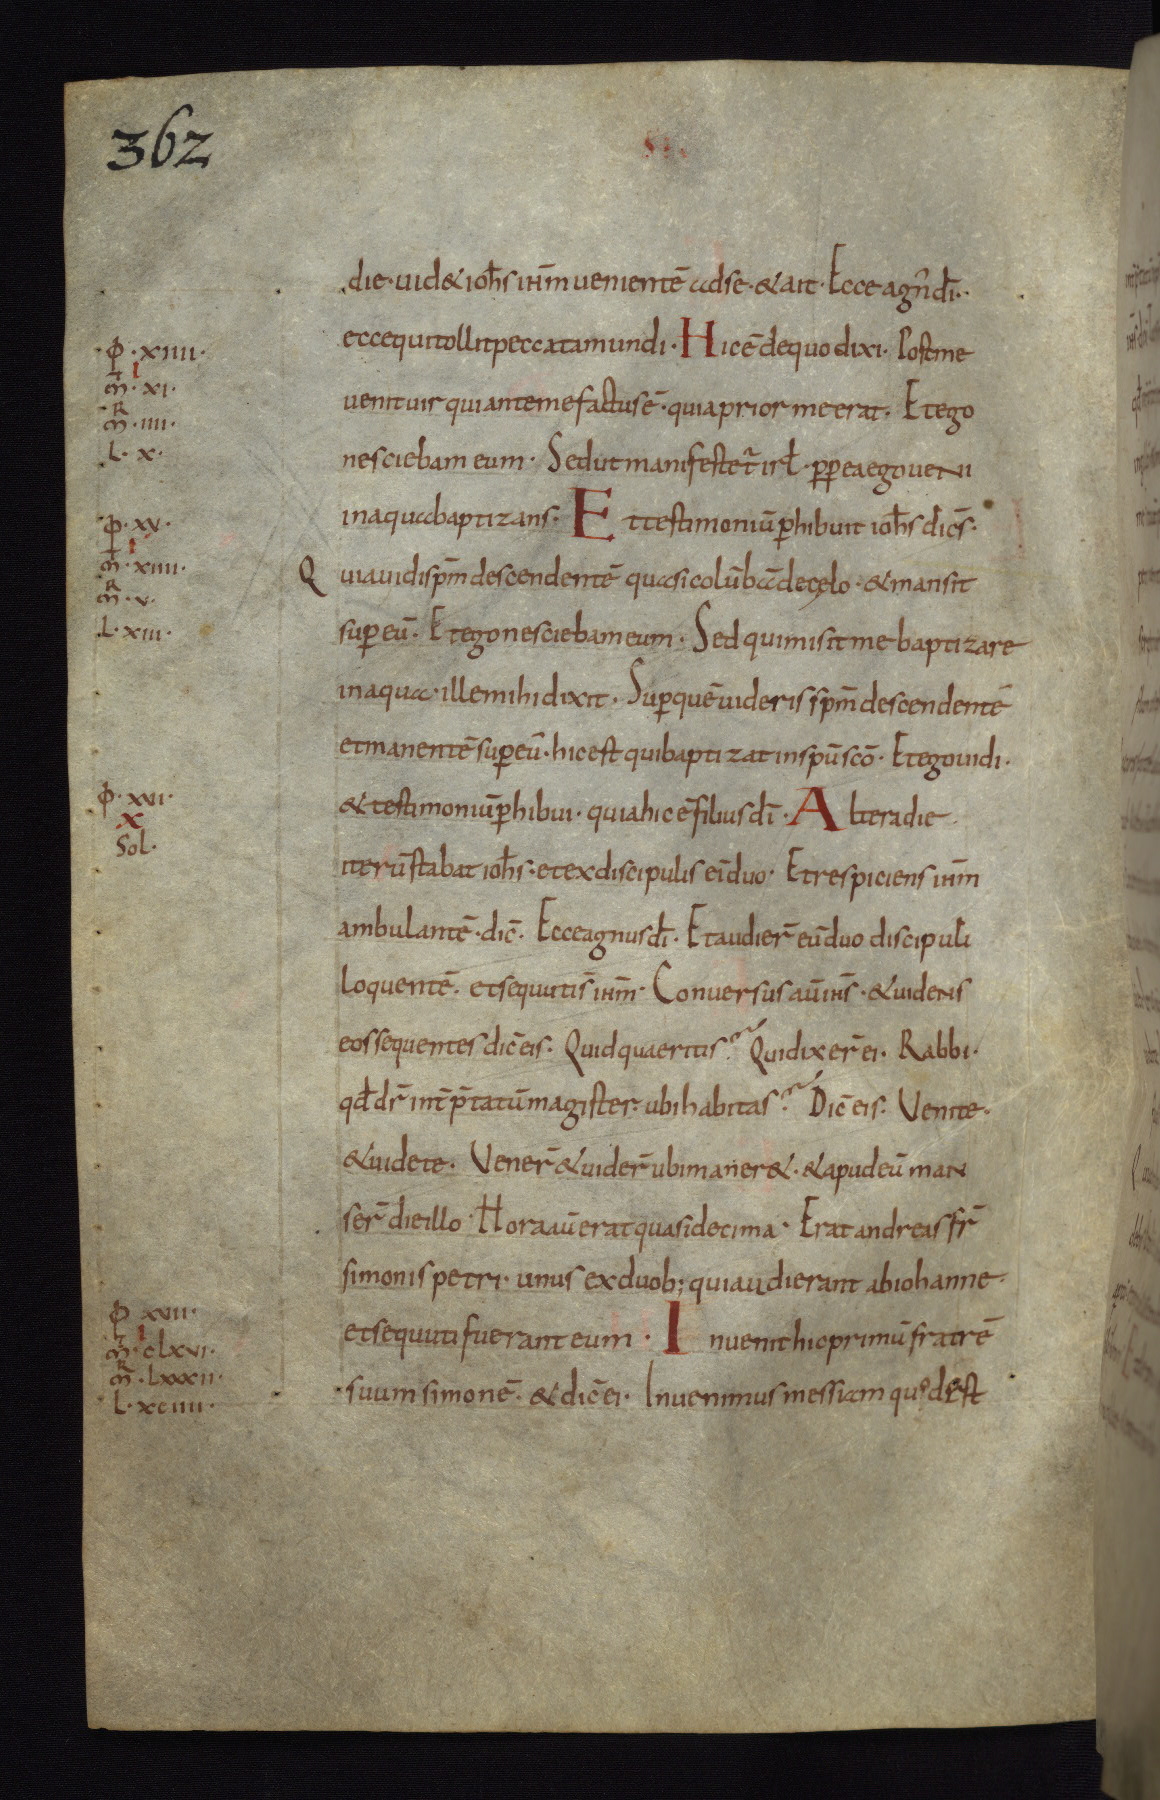 362
die· uid& ioh̅s ih̅m uenientē ad se· & ait· Ecce agn̅ dī·
ecce qui tollit peccata mundi· Hic ē de quo dixi· Post me
uenit uir qui ante me factus ē· quia prior me erat· Et ego
nesciebam eum· Sed ut manifestet̅ isrł· ꝓp ea ego ueni
in aqua baptizans· Et testimoniū ꝑhibuit ioh̅s dicēs·
Quia uidi sp̅m descendentē quasi colūbā de cęlo· & mansit
suꝑ eū· Et ego nesciebam eum· Sed qui misit me baptizare
in aqua· ille mihi dixit· Suꝑ quē uideris sp̅m descendentē
et manentē suꝑ eū· hic est qui baptizat in spū scō· Et ego uidi·
& testimoniū ꝑhibui· quia hic ē filius dī· Altera die
iterū stabat ioh̅s· et ex discipulis ei̅ duo· Et respiciens ih̅m
ambulantē· dic̅· Ecce agnus dī· Et audier̅ eū duo discipuli
loquentē· et sequuti s̅ ih̅m· Conuersus au̅ ih̅s· & uidens
eos sequentes dic̅ eis· Quid quaeritis? Qui dixer̅ ei· Rabbi·
qd̅ dr̅ int̅p̅tatū magister· ubi habitas? Dic̅ eis· Venite·
& uidete· Vener̅ & uider̅ ubi maner&· & apud eū man
ser̅ die illo· Hora au̅ erat quasi decima· Erat andreas fr̅
simonis petri· unus ex duob; qui audierant ab iohanne·
et sequuti fuerant eum· Inuenit hic primū fratrē
suum simonē· & dic̅ ei· Inuenimus messiam quod est
Φ· xiiii·
i
m̅· xi·
m̅ʀ· iiii·
L· x·
Φ· xv·
i
m̅· xiiii·
m̅ʀ· v·
L· xiii·
Φ· xvi·
x
Sol·
Φ xvii·
i
m̅· clxvi·
m̅ʀ· lxxxii·
L· xciiii·